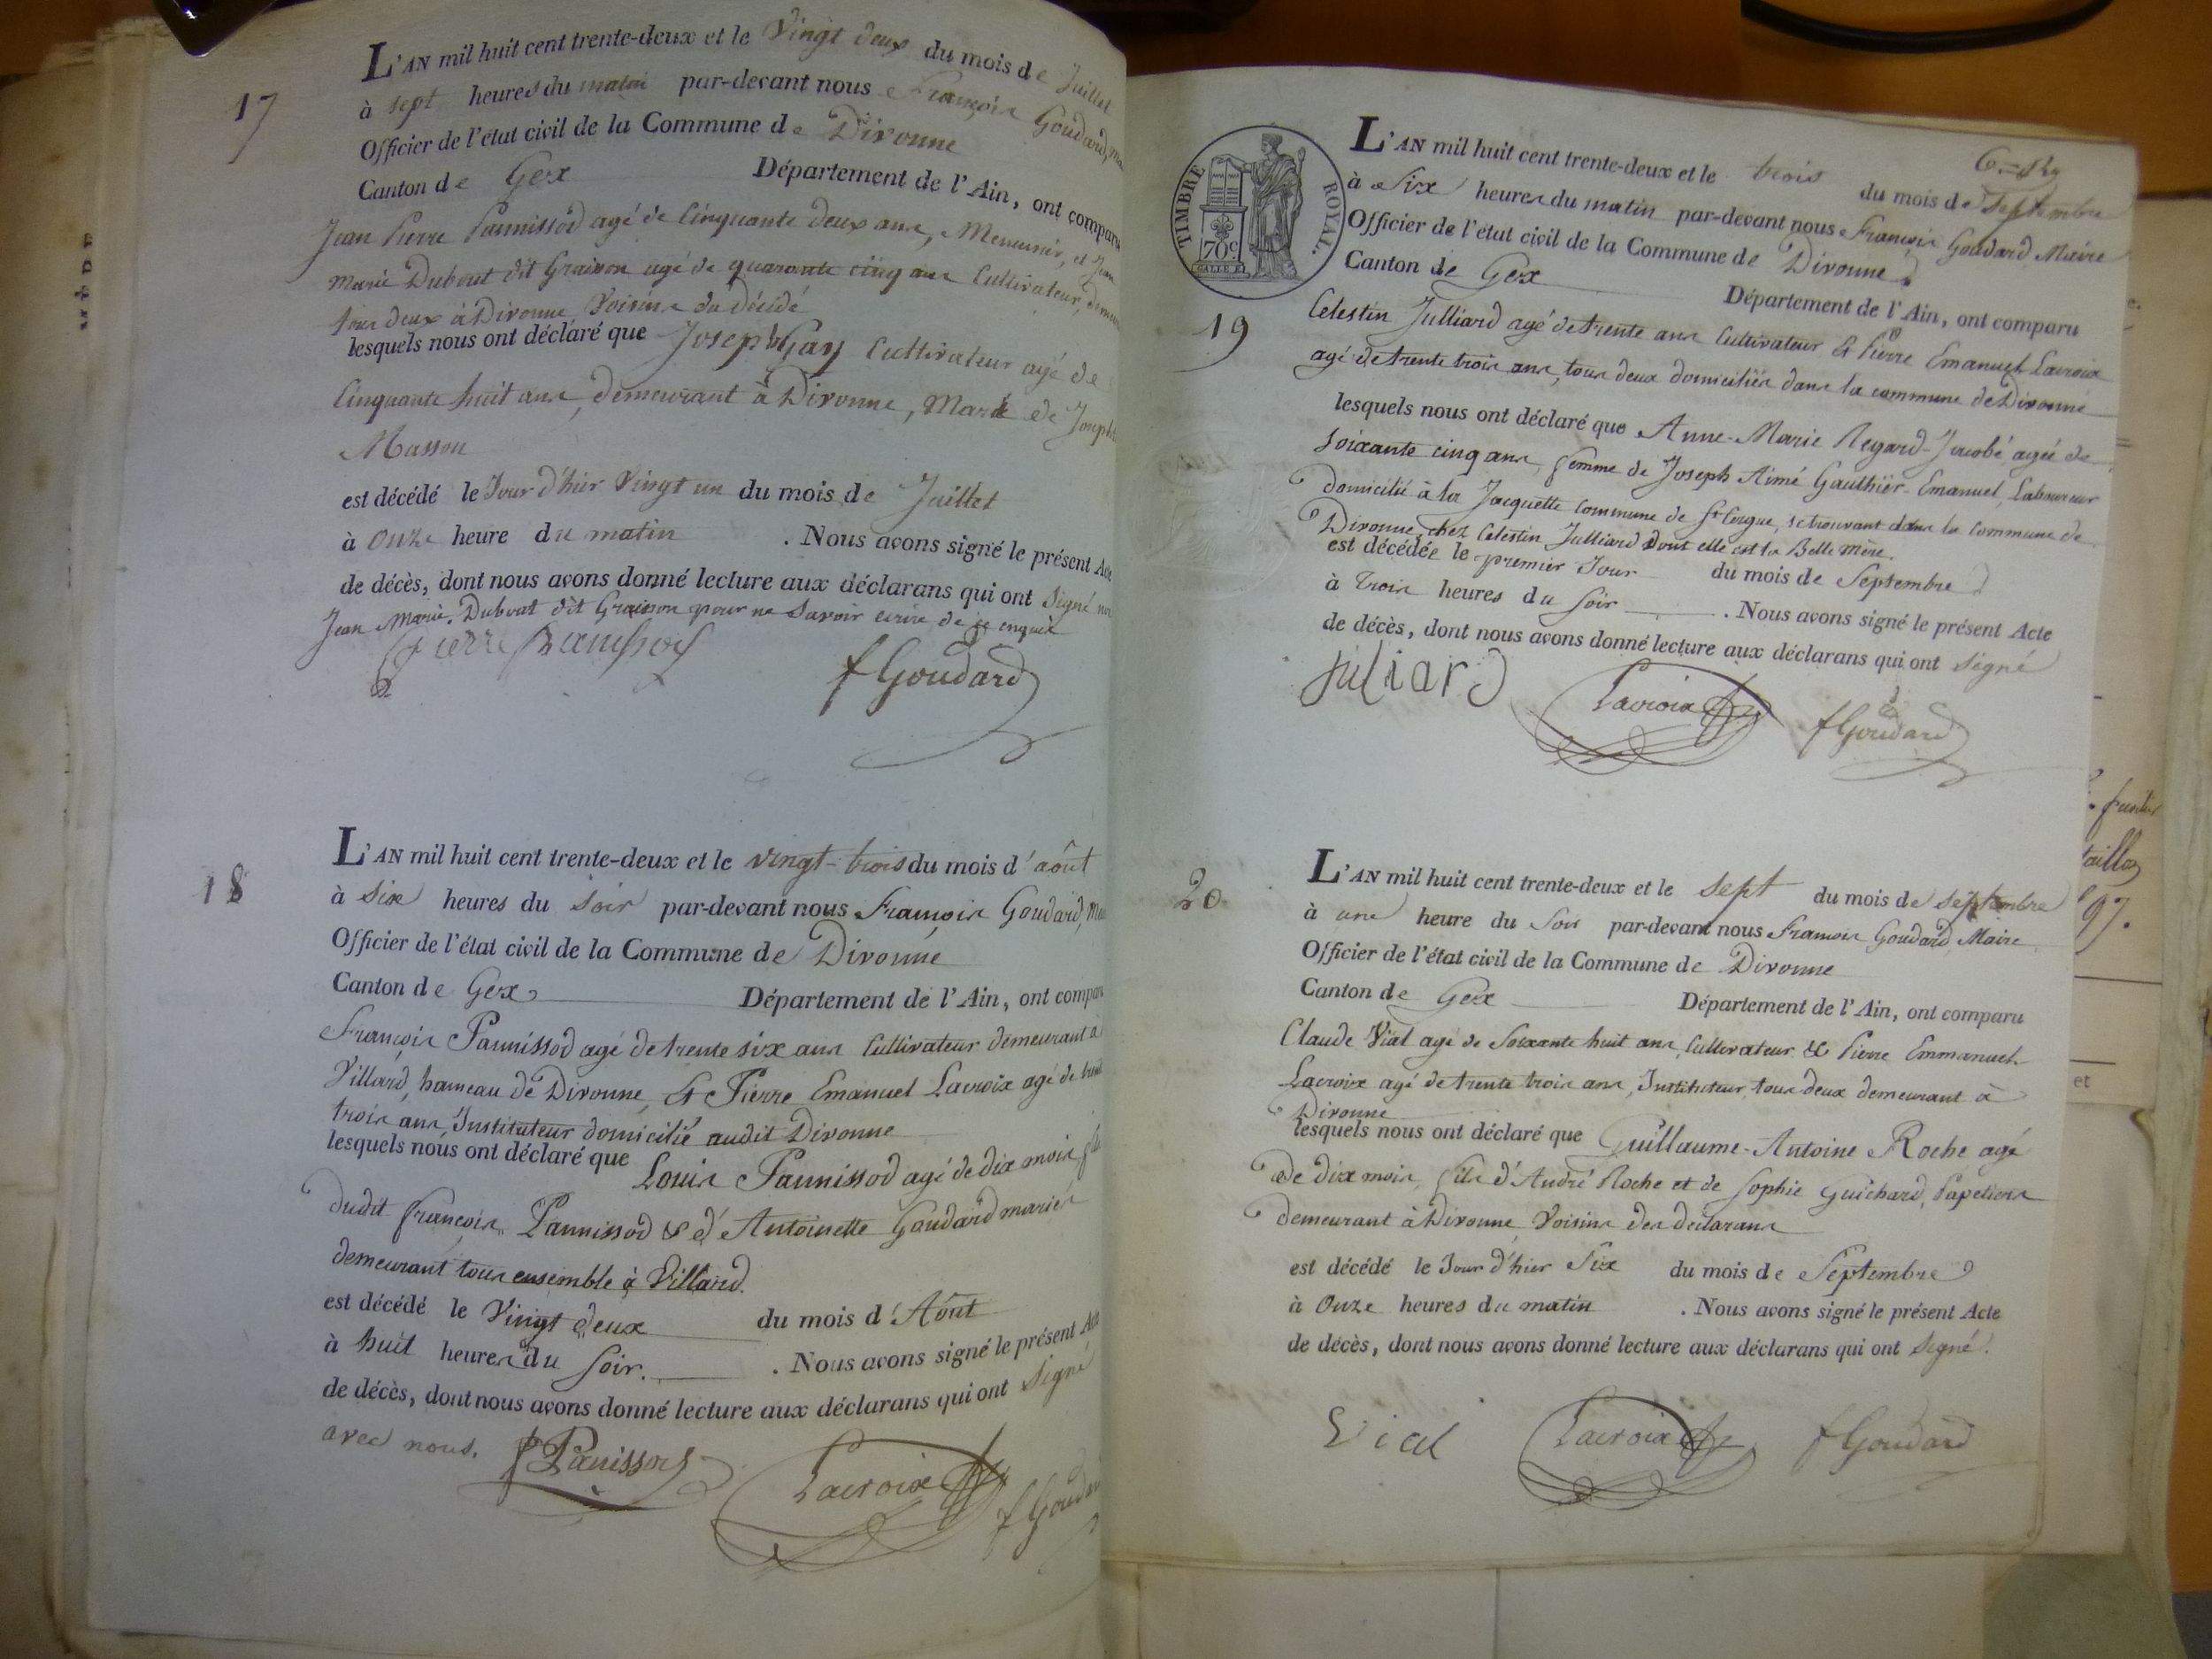 17
L'AN mil huit cent trente-deux et le Vingt deux du mois de Juillet
à sept heures du matin par-devant nous François Goudard,
Officier de l'état civil de la Commune de Divonne
Canton de Gex Département de l'Ain, ont comparu
Jean Pierre Pannissod agé de Cinquante deux ans, Menuisier, et Jean
marie Dubout dit Graison agé de quarante cinq ans Cultivateur,
tous deux à Divonne Voisins du décédé
lesquels nous ont déclaré que Joseph Gay Cultivateur agé de
Cinquante huit ans, demeurant à Divonne, Marié de
Masson
est décédé le Jour d'hier Vingt un du mois de Juillet
à Onze heure du matin . Nous avons signé le présent Acte
de décès, dont nous avons donné lecture aux déclarans qui ont Signé
Jean Marie Dubout dit Graison pour ne Savoir écrire de ce enquis
fGoudard
18
L'AN mil huit cent trente-deux et le vingt-trois du mois d'aôut
à Six heures du Soir par-devant nous François Goudard,
Officier de l'état civil de la Commune de Divonne
Canton de Gex Département de l'Ain, ont compar
François Pannissod agé de trente six ans Cultivateur demeurant à
Villard, hameau de Divonne, Et Pierre Emanuel Lacroix agé de trente
trois ans, Instituteur domicilié audit Divonne
lesquels nous ont déclaré que Louis Pannissod agé de dix mois,
dudit françois Pannissod & d'Antoinette Goudard mariés
demeurant tous ensemble à Villard.
est décédé le Vingt deux du mois d'Aôut
à huit heures du Soir. . Nous avons signé le présent Acte
de décès, dont nous avons donné lecture aux déclarans qui ont Signé
avec nous.
fPanissod Lacroix fGoudard
TIMBRE ROYAL.
70c
19
L'AN mil huit cent trente-deux et le trois du mois de Septembre
à Six heures du matin par-devant nous François Goudard Maire
Officier de l'état civil de la Commune de Divonne
Canton de Gex Département de l'Ain, ont comparu
Celestin Julliard agé de trente ans Cultivateur Et Pierre Emanuel Lacroix
agé de trente trois ans, tous deux domiciliés dans la commune de Divonne
lesquels nous ont déclaré que Anne-Marie Regard-Jacobé agée de
Soixante cinq ans, femme de Joseph Aimé Gauthier-Emanuel, Laboureur
domicilié à la Jacquette commune de St Cergue, se trouvant dans la commune de
Divonne, chez Celestin Julliard dont elle est la Belle mère.
est décédée le premier Jour du mois de Septembre
à trois heures du Soir . Nous avons signé le présent Acte
de décès, dont nous avons donné lecture aux déclarans qui ont Signé
Juliard Lacroix fGoudard
20
L'AN mil huit cent trente-deux et le Sept du mois de Septembre
à une heure du Soir par-devant nous François Goudard Maire
Officier de l'état civil de la Commune de Divonne
Canton de Gex Département de l'Ain, ont comparu
Claude Vial agé de Soixante huit ans, Cultivateur & Pierre Emmanuel
Lacroix agé de trente trois ans, Instituteur, tous deux demeurant à
Divonne
lesquels nous ont déclaré que Guillaume-Antoine Roche agé
de dix mois, fils d'André Roche et de Sophie Guichard, Papetiers
demeurant à Divonne, Voisins des déclarans
est décédé le Jour d'hier Six du mois de Septembre
à Onze heures du matin . Nous avons signé le présent Acte
de décès, dont nous avons donné lecture aux déclarans qui ont Signé.
Vial Lacroix fGoudard
97.
et